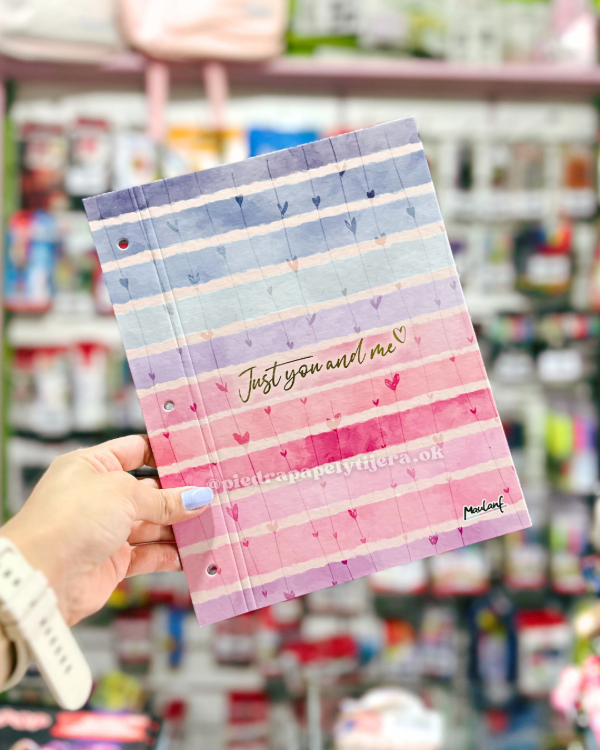 Just you and me
@piedrapapelytijera.ok
Maulanf